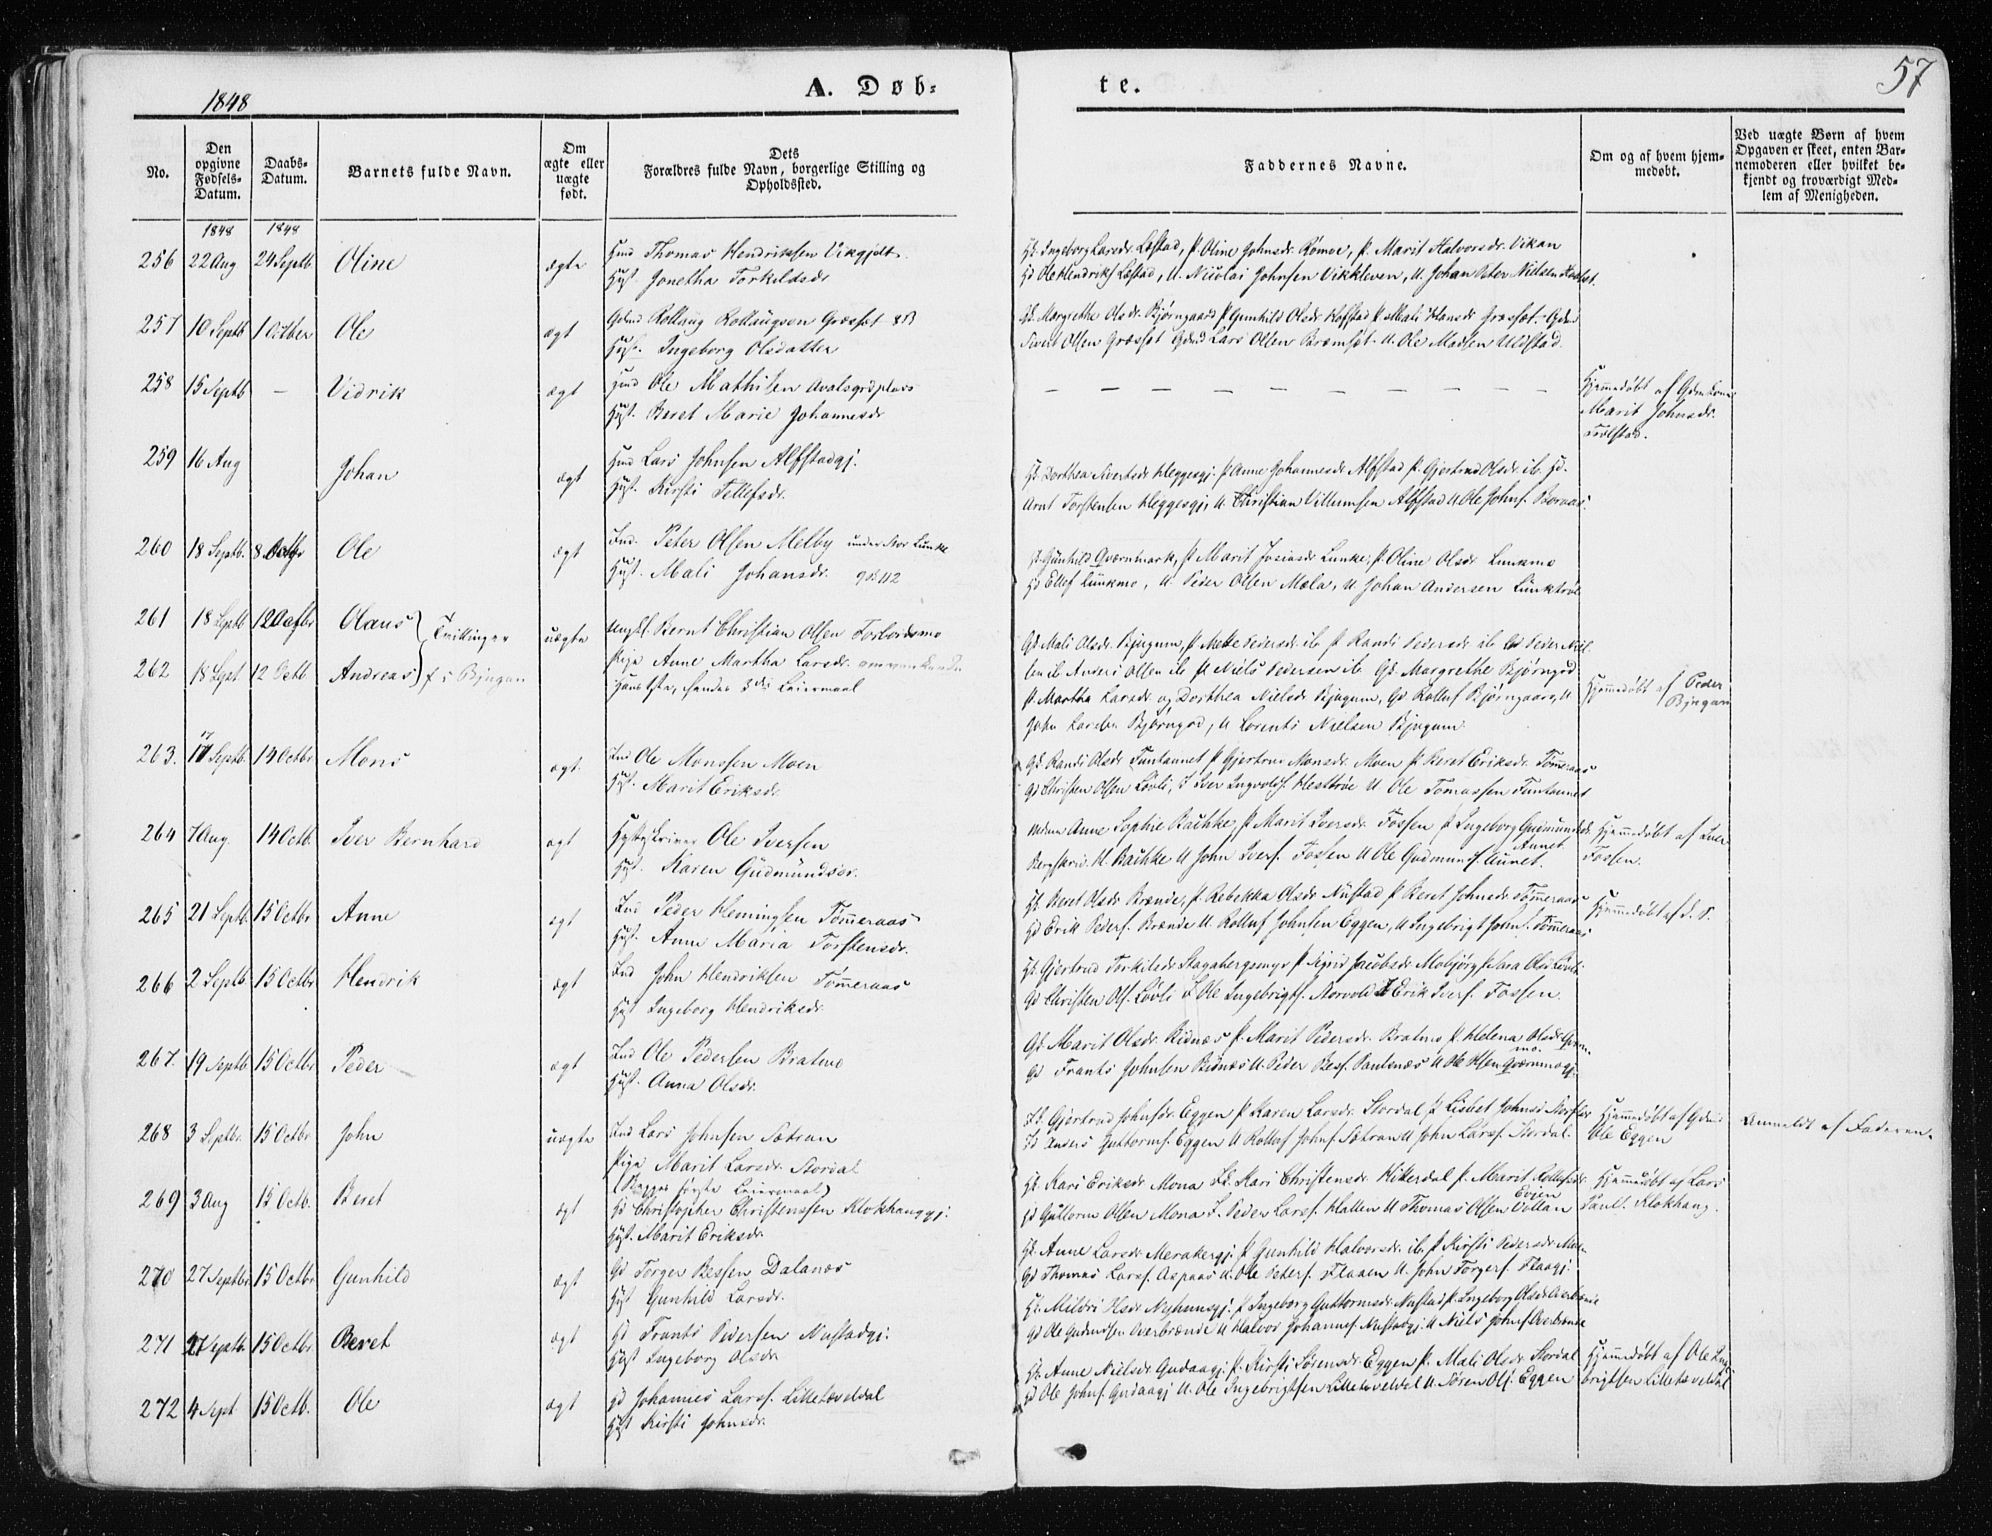 57
1848
A. Døb-
te.
No.
Den opgivne Fødsels-Datum.
Daabs-Datum.
Barnets fulde Navn.
Om ægte eller uægte født.
Dets Forældres fulde Navn, borgerlige Stilling og Opholdssted.
Faddernes Navne.
Om og af hvem hjemmedøbt.
Ved uægte Børn af hvem Opgaven er skeet, enten Barnemoderen eller hvilket bekjendt og troværdigt Medlem af Menigheden.
1848 1848
256 22 Aug 24 Septb Oline ægte Hmd Thomas Hendriksen
Hust. Jonetha Torkildsdr
Ingeborg Larsdr Læstad, P. Oline Johnsdr Rømoe, P. Marit Halvorsdr. Vikan
Ole Hendriks Læstad, U. Nicolai Johnsen Vikkleven, U. Johan Peter Nielsen
257 10 Septb 1 October Ole ægt Gdmd Rollaug Rollaugsen Græsset
Hust. Ingeborg Olsdatter
Gd. Margrethe Olsdr. Bjørngaard P. Gunhild Olsdr Hofstad P. Mali Hansdr Græsset
Sivert Olsen Græsset Gdmd Lars Olsen U. Ole Madsen Uldstad
258 15 Septb — Vidrik ægt Hmd Ole Mathisen
Hust. Beret Marie Johannesdr
— — — — — — — — — — —
Hjemmedøbt af
Marit Johnsdr.
259 16 Aug Johan ægt Hmd Lars Johnsen Alfstadgj.
Hust. Kirsti Tellefsdr.
Dorthea Sivertsdr Heggesgj. P. Anne Johannesdr Alfstad P. Gjertrud Olsdr. ib.
Arnt Torstensen Heggesgj, U. Christian Villumsen Alfstad U. Ole Johns.
260 18 Septb. 8 Octbr Ole ægt Ind. Peter Olsen Melby under Stor Lunke
Hust. Mali Johansdr.
Gunhild Qværnmark, P. Marit Josiasdr Lunke, P. Oline Olsdr Lunkmo
Ellef Lunkmo, U. Peder Olsen Mæla, U. Johan Andersen
261 18 Septb 12 Octbr Olaus } Tvillinger uægte Ungkl. Bernt Christian Olsen
262 18 Sept 12 Octb. Andreas } f. i Bjugan Pige Anne Martha Larsdr.
hendes 3die Leiermaal
Gd. Mali Olsdr. Bjugum, P. Mette Pedersdr. ib P. Randi Pedersdr ib
Anders Olsen ib U. Niels Pedersen ib Gd. Margrethe Bjørngrd
P. Martha Larsdr og Dorthea Nielsdr Bjugum, Gd Rolluf Bjørngaard, U.
John Larsen Bjørngrd, U Lorents Nielsen Bjugum
Hjemmedøbt af Peder
Bjugum
263. 17 Septb. 14 Octbr Mons ægt. Ind Ole Monssen Moen
Hust. Marit Eriksdr.
Gd. Randi Olsdr Funtaunet P. Gjertrud Monsdr. Moen P. Beret Eriksdr. Tømmeraas
Gd Christen Olsen Løvli, Iver Ingvolds. U Ole Tomassen Funtaunet
264 7 Aug. 14 Octb. Iver Bernhard ægt Ole Iversen
Hust. Karen Gudmundsdr.
Anne Sophie Bachke, P. Marit Iversdr. Fossen P. Ingeborg Gudmundsdr. Aunet
Bergskriv. H. Bachke U John Ivers. Fossen U Ole Gudmunds. Aunet.
Hjemmedøbt af Iver
Fossen.
265 21 Septb. 15 Octbr Anne ægt Ind Peder Hemingsen Tømmeraas
Hust. Anne Maria Torstensdr.
Beret Olsdr Brænde, P. Rebekka Olsdr Nustad P. Beret Johnsdr Tømmeraas
Gd Erik Peders. Brænde U. Rolluf Johnsen Eggen, U Ingebrigt Johns. Tømmeraas
Hjemmedøbt af J. P.
266 2 Septb 15 Octbr Hendrik ægt Ind John Hendriksen Tømmeraas
Hust Ingeborg Hendriksdr
Gjertrud Torkilsdr P. Sigrid Jacobsdr P. Sara Olsdr Løvli
Gd Christen Ols. Løvli Ole Ingebrigts. Erik Ivers. Fossen.
267. 19 Septb 15 Octbr Peder ægt Ind Ole Pedersen Bratmo
Hust. Anna Olsdr.
Gd Marit Olsdr. Bidnæs P. Marit Pedersdr. Bratmo P. Helena Olsdr Qværnmo.
Gd Frants Johnsen Bidnæs U. Peder U Ole Olsen Qværnmogj.
268 3 Septbr. 15 Octbr. John uægte Ind Lars Johnsen Sætran
Pige Marit Larsdr. Stordal
(Begges første Leiermaal)
Gjertrud Johnsdr. Eggen P. Karen Larsdr. Stordal P. Lisbet Johnsdr
Anders Guttorms. Eggen U Rolluf Johns. Sætran U John Larss. Stordal.
Hjemmedøbt af Gdmd
Ole Eggen
Anmeldt af Faderen.
269 3 Aug 15 Octb. Beret ægt Gd Christopher Christenssen Klokhauggj.
Hust. Marit Eriksdr.
Kari Eriksdr Mona Kari Christensdr. P. Marit Rollufsdr. Evjen
Gd Guttorm Olsen Mona Peder Larss. Hallen U Thomas Olsen Vollan
Hjemmedøbt af Lars
Paul. Klokhaug.
270 27 Septbr 15 Octbr Gunhild ægt Gd Torger Bessen Dalanæs
Hust Gunhild Larsdr.
Anne Larsdr Merakergj. P. Gunhild Halvorsdr. ib. P. Kirsti Pedersdr
Gd Thomas Larss. Aspaas U. Ole Peters. Flaaen U. John Torgers. Flaagj.
271 27 Septb 15 Octbr Beret ægt Gd Frants Pedersen Nustadgj.
Hust Ingeborg Olsdr
Mildri Olsdr P. Ingeborg Guttormsdr Nustad P. Ingeborg Olsdr
Gd Ole Gudmdsen U. Halvor Johannes. Nustadgj. U Niels Johns
272 4 Sept 15 Octb. Ole ægt Gd Johannes Larss. Litletevelddal
Hust Kirsti Johnsdr.
Anne Nielsdr Gudaagj P. Kirsti Sørensdr. Eggen P. Mali Olsdr Stordal
Gd Ole Johns. Gudaagj U. Ole Ingebrigtsen U Søren Ols. Eggen
Hjemmedøbt af Ole Inge-
brigtsen